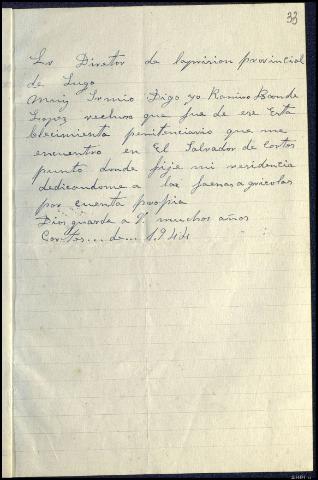 33
Sr Diretor de laprision provincial
de Lugo
Muiy Srmio Digo yo Ramiro
Lopez recluso que fue de ese Esta
blecimiento penitenciario que me
encuentro en El Salvador de Cortos
punto donde fije mi residencia
dedicandome a las faenas agricolas
por cuenta propia
Dios guarde a V. muchos años
Cortos... de... 1.944